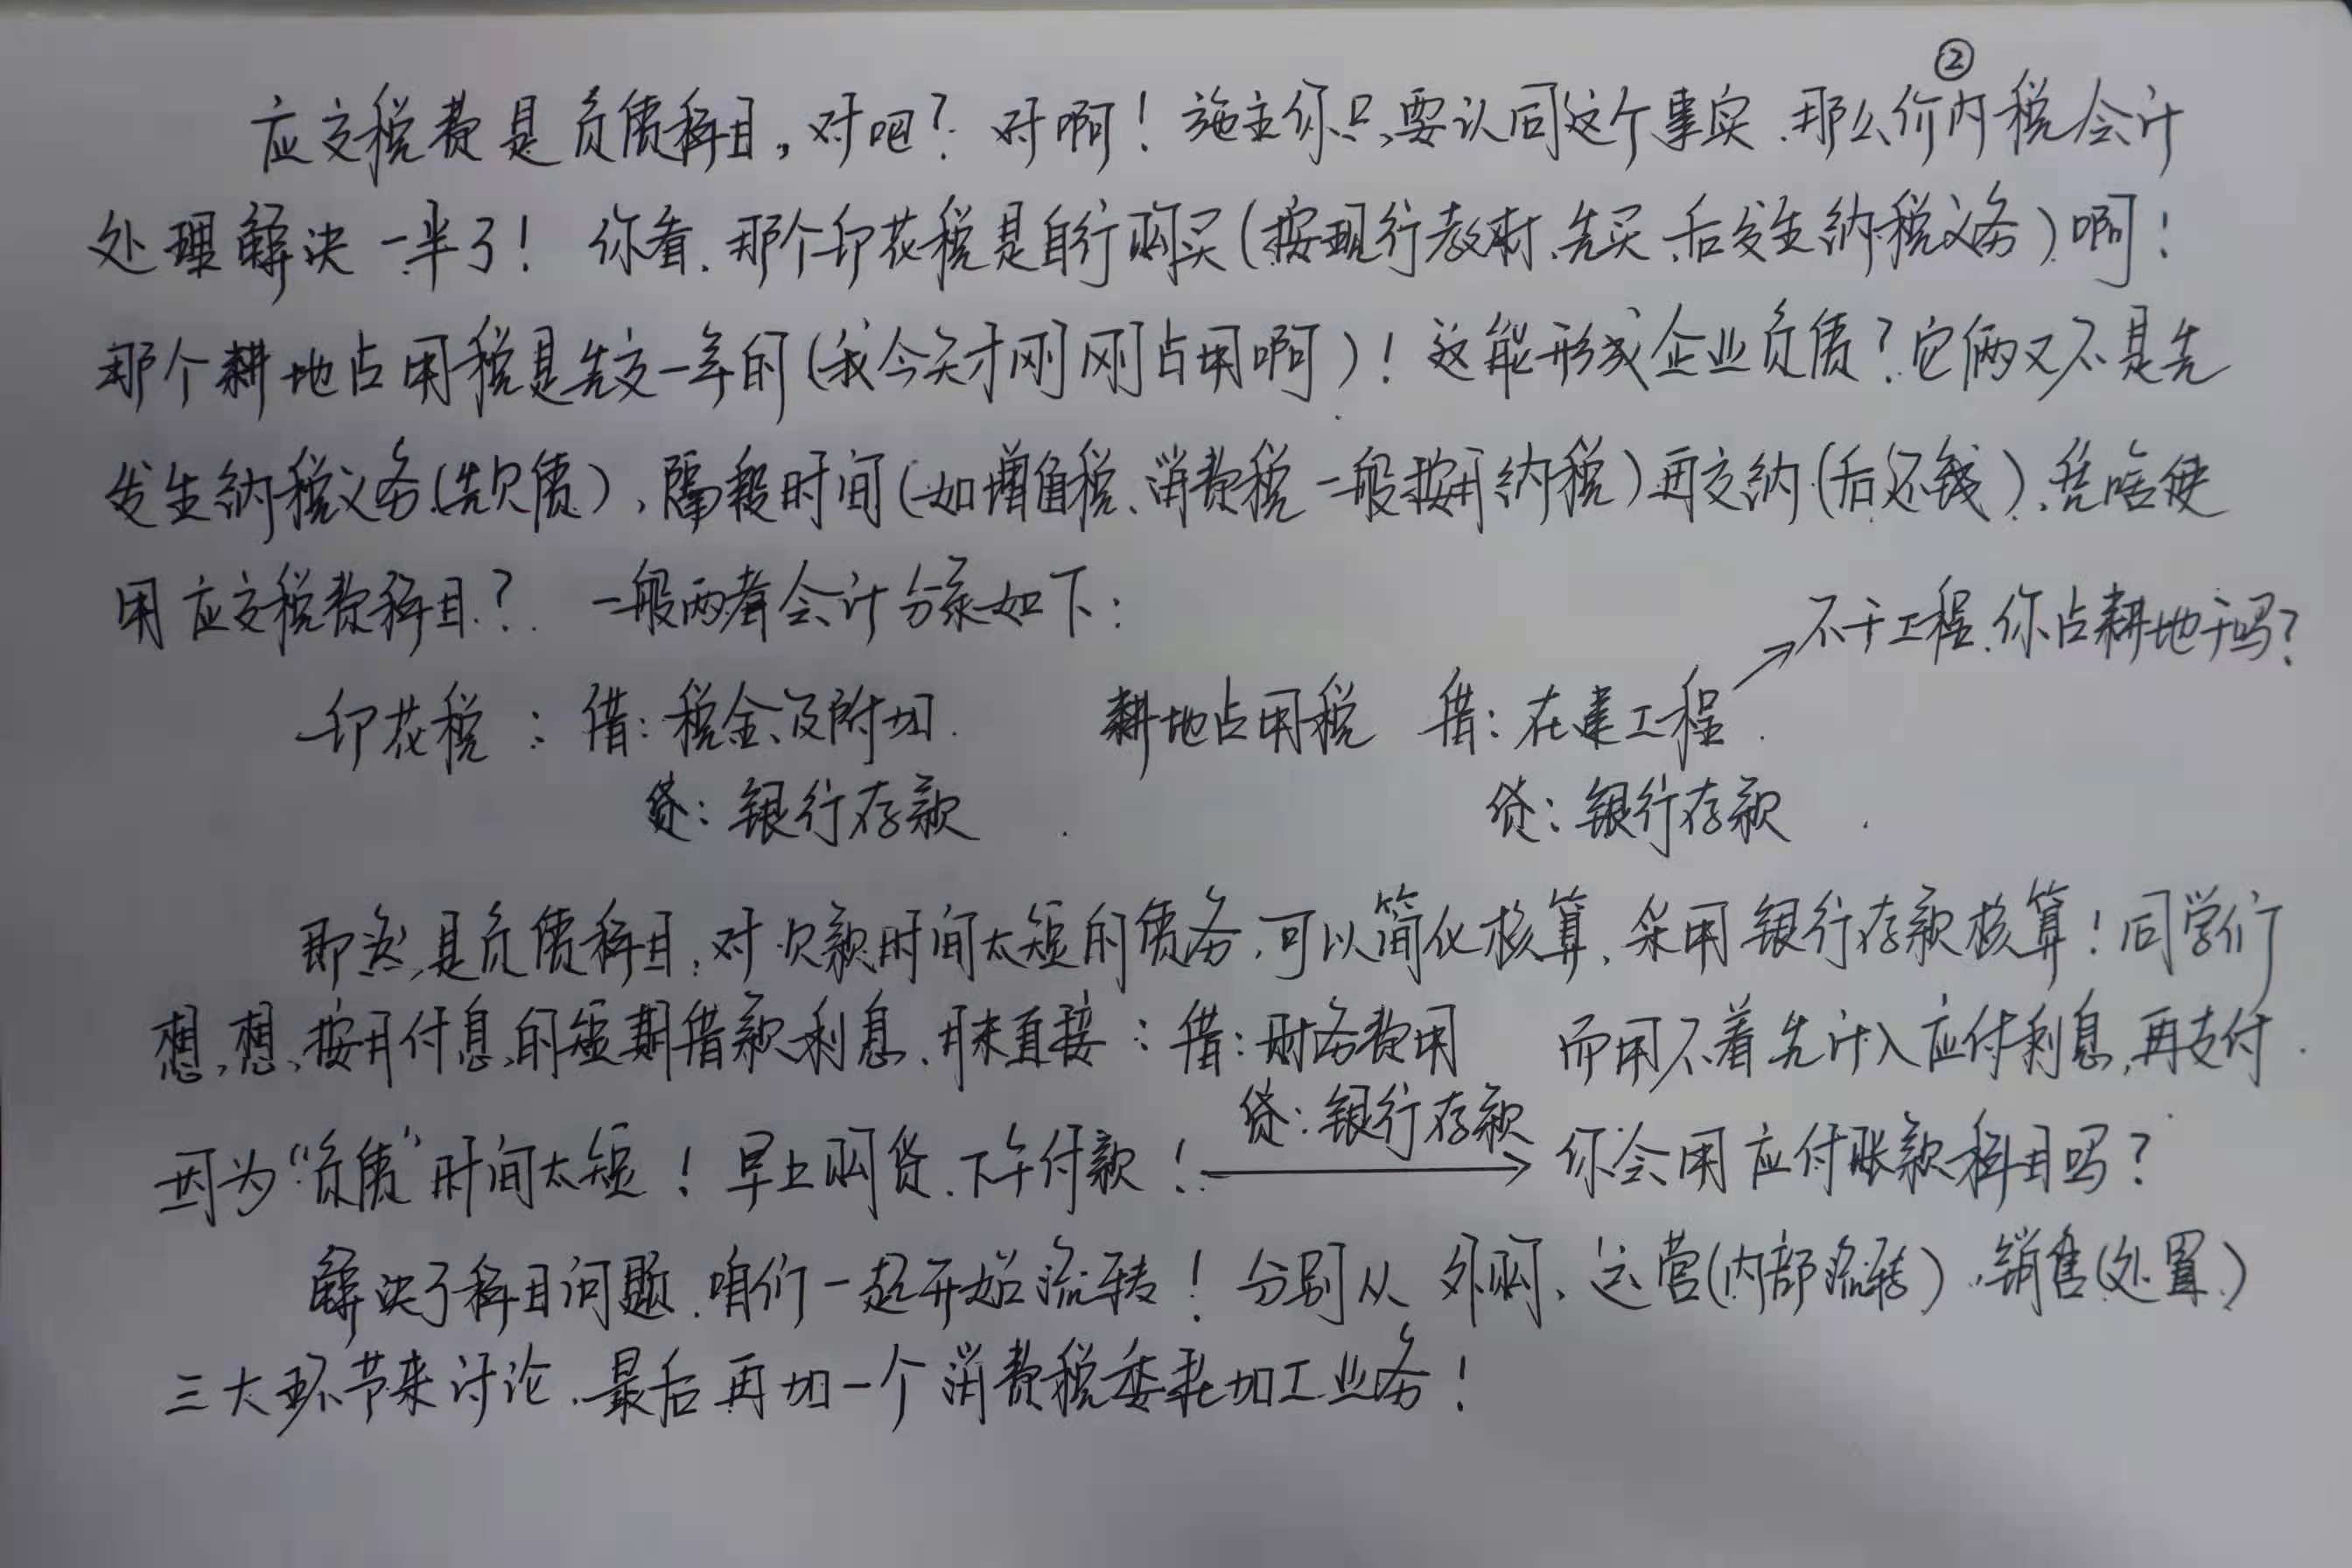 ②
应交税费是负债科目，对吧？对啊！施主你只要认同这个事实，那么价内税会计
处理解决一半了！你看，那个印花税是自行购买（按现行教材、先买、后发生纳税义务）啊！
那个耕地占用税是先交一年的（我今天才刚刚占用啊）！这能形成企业负债？它俩又不是先
发生纳税义务（先欠债），隔段时间（如增值税、消费税一般按月纳税）再交纳（后还钱），凭啥使
用应交税费科目？一般两者会计分录如下：
→不干工程，你占耕地干吗？
印花税：借：税金及附加. 耕地占用税 借：在建工程.
贷：银行存款 贷：银行存款.
即然是负债科目，对欠款时间太短的债务，可以简化核算，采用银行存款核算！同学们
想想，按月付息的短期借款利息，月末直接：借：财务费用 而用不着先计入应付利息，再支付.
贷：银行存款
因为“负债”时间太短！早上购货，下午付款！→你会用应付账款科目吗？
解决了科目问题，咱们一起开始流转！分别从外购、运营（内部流转）、销售（处置）
三大环节来讨论，最后再加一个消费税委托加工业务！